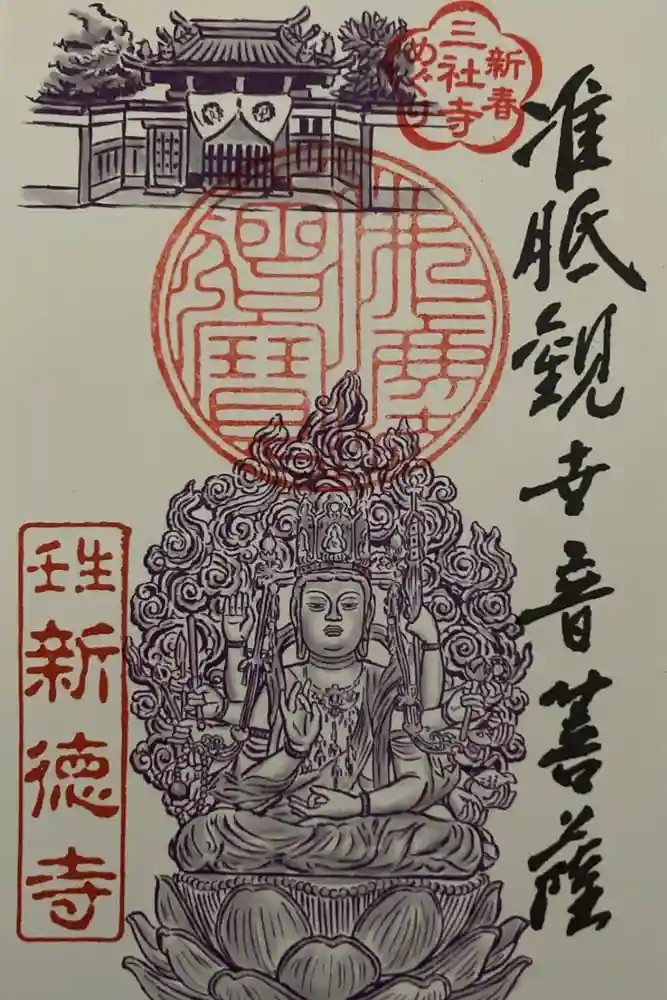 准胝観世音菩薩
新春
三社寺
めぐり
壬生
新徳寺